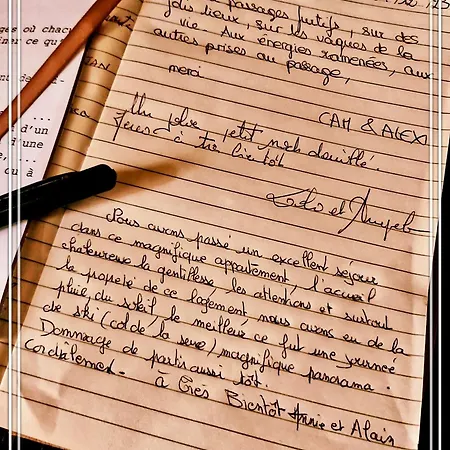 passages furtifs, sur des
jolis lieux, sur les vagues de la
vie. Aux énergies ramenées, aux
autres prises au passage,
merci
CAM & ALEXI
Un petit nid douillet.
à très bientôt
et
Nous avons passé un excellent séjour
dans ce magnifique appartement, l'accueil
chaleureux la gentillesse, les attentions et surtout
la propreté de ce logement nous avons eu de la
pluie, du soleil, le meilleur ce fut une journée
de ski (col de la
magnifique panorama.
Dommage de partir aussi tôt.
Cordialement -
à très Bientôt Annie et Alain
ges où chacu
iner ce qu'i
nt de
d'un
d'une
...
ou à